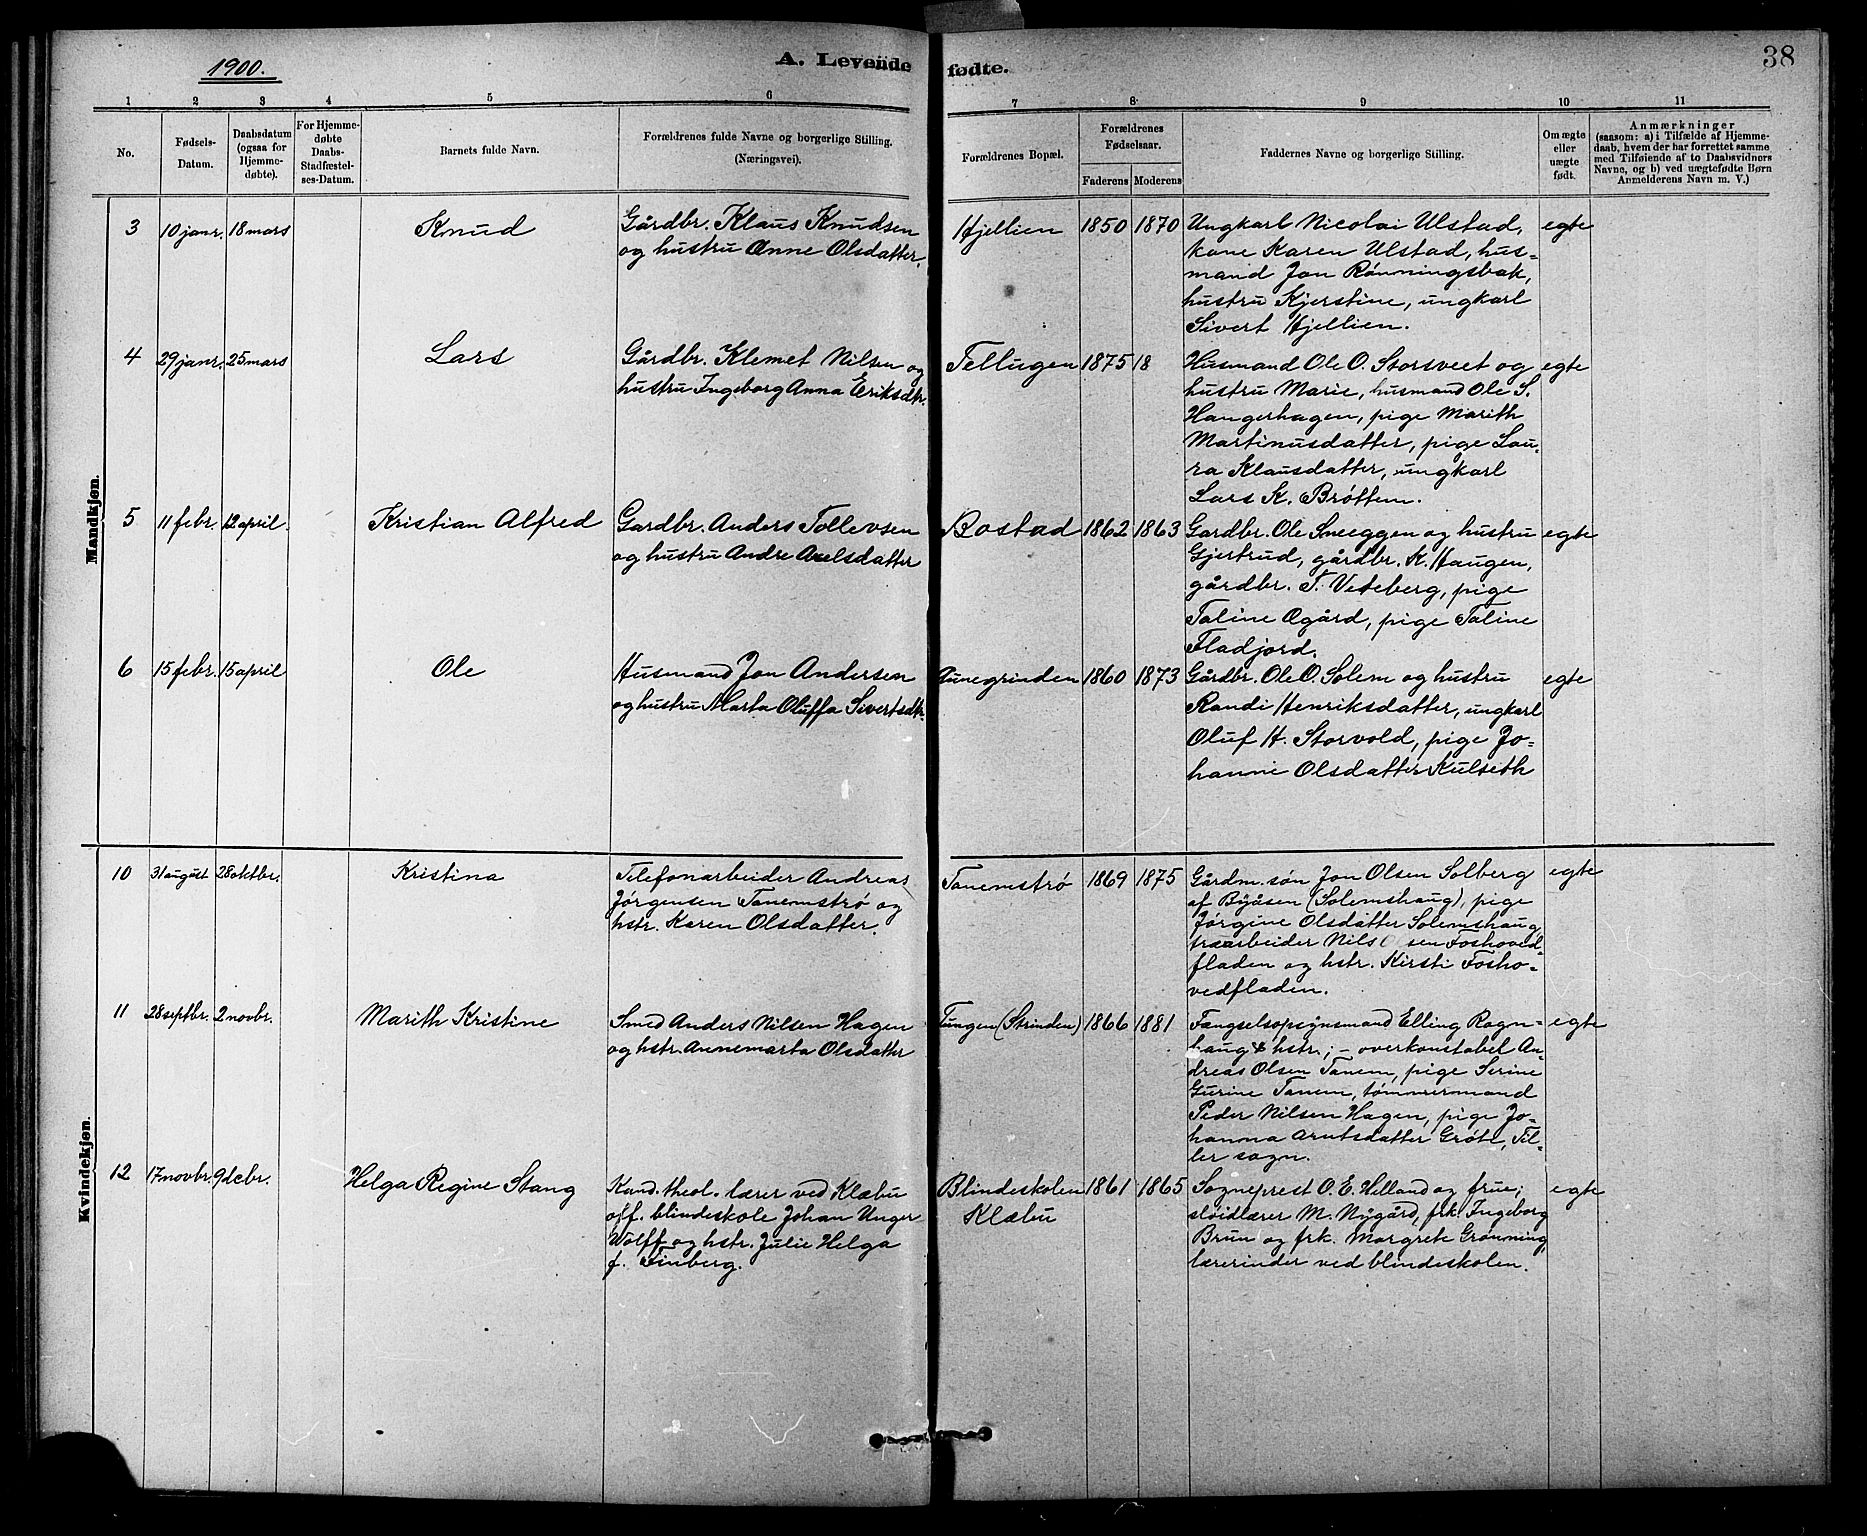 1900.
A. Levende fødte.
38
1 2 3 4 5 6 7 8 9 10 11
No.
Fødsels-
Datum.
Daabsdatum
(ogsaa for
Hjemme-
døbte).
For Hjemme-
døbte
Daabs-
Stadfæstel-
ses-Datum.
Barnets fulde Navn.
Forældrenes fulde Navne og borgerlige Stilling.
(Næringsvei).
Forældrenes Bopæl.
Forældrenes
Fødselsaar.
Faderens Moderens
Faddernes Navne og borgerlige Stilling.
Om ægte
eller
uægte
født.
Anmærkninger
(saasom: a) i Tilfælde af Hjemme-
daab, hvem der har forrettet samme
med Tilføiende af to Daabsvidners
Navne, og b) ved uægtefødte Børn
Anmelderens Navn m. V.)
Mandkjøn.
3 10 janr. 18 mars Knud
Gårdbr. Klaus Knudsen
og hustru Anne Olsdatter.
Hjellien 1850 1870
Ungkarl Nicolai Ulstad,
kone Karen Ulstad, hus-
mand Jon Rønningsbak,
hustru Kjerstine, ungkarl
Sivert Hjellien.
egte
4 29 janr. 25 mars Lars
Gårdbr. Klemet Nilsen og
hustru Ingeborg Anna Eriksdtr.
Tellugen 1875 18
Husmand Ole O. Storsveet og
hustru Marie, husmand Ole S.
Hangerhagen, pige Marith
Martinusdatter, pige Lau-
ra Klausdatter, ungkarl
Lars K. Brøttem.
egte
5 11 febr. 12 april. Kristian Alfred
Gardbr. Anders Tollevsen
og hustru Andre Axelsdatter
Bostad 1862 1863
Gardbr. Ole Sneeggen og hustru
Gjertrud, gårdbr. K. Haugen,
gårdbr. T. Veteberg, pige
Taline Øgård, pige Taline
Fladjord.
egte
6 15 febr. 15 april Ole
Husmand Jon Andersen
og hustru Marta Oluffa Sivertsdtr.
Tunegrinden 1860 1873
Gårdbr. Ole O. Solem og hustru
Randi Henriksdatter, ungkarl
Oluf H. Storvold, pige Jo-
hanne Olsdatter Kulseth
egte
Kvindekjøn.
10 31 august 28 oktbr. Kristina
Telefonarbeider Andreas
Jørgensen Tanemstrø og
hstr. Karen Olsdatter.
Tanemstrø 1869 1875
Gårdm. søn Jon Olsen Solberg
af Byåsen (Solemshaug), pige
Jørgine Olsdatter Solemshaug,
træarbeider Nils Olsen Foshoved-
fladen og hstr. Kirsti Fosho-
vedfladen.
egte
11 28 septbr. 2 novbr. Marith Kristine
Smed Anders Nilsen Hagen
og hstr. Annemarta Olsdatter
Tungen (Strinden) 1866 1881
Fængselsopsynsmand Elling Ragn-
haug & hstr.; – overkonstabel An-
dreas Olsen Tanem, pige Serine
Gurine Tanem, tømmermand
Peder Nilsen Hagen, pige Jo-
hanna Arntsdatter Grøte, Til-
ler sogn.
egte
12 17 novbr. 9 dcbr. Helga Regine Stang
Kand. theol. lærer ved Klæbu
off. blindeskole Johan Unger
Wolff og hstr. Julie Helga
f. Finberg.
Blindeskolen
Klæbu
1861 1865
Sogneprest O. E. Helland og frue;
sløidlærer M. Nygård, frk. Ingeborg
Brun og frk. Margrete Grønning,
lærerinder ved blindeskolen.
egte